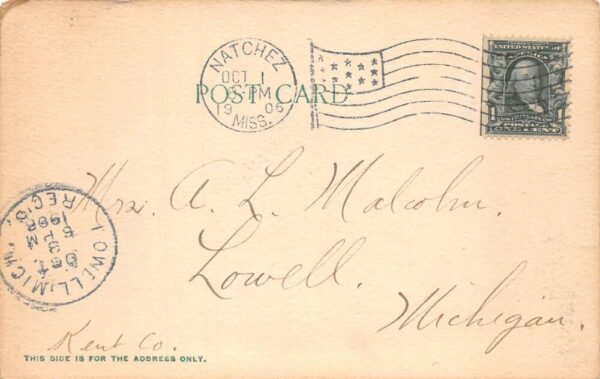 NATCHEZ
OCT 1
PM
1906
MISS.
POST CARD
UNITED STATES OF
1
POSTAGE
CENT
Mrs. A. L. Malcolm.
Lowell.
Michigan.
LOWELL, MICH.
OCT
3
PM
1906
REC'D.
Kent Co.
THIS SIDE IS FOR THE ADDRESS ONLY.